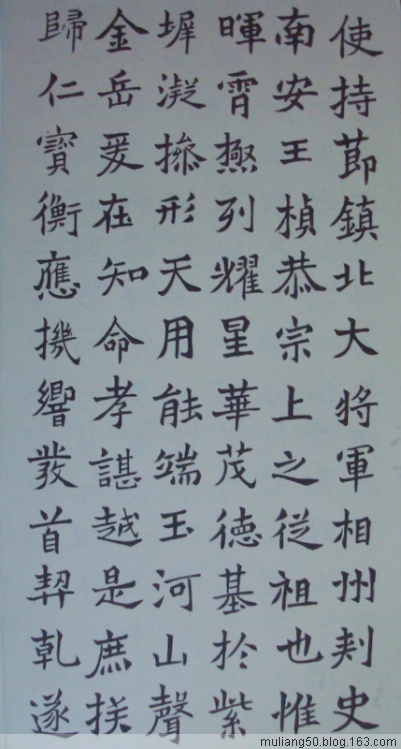 使持莭鎮北大将軍相州刾史
南安王楨恭宗上之従祖也惟
暉霄極列耀星華茂德基於紫
墀凝操形天用能端玉河山聲
金岳爰在知命孝諶越是庶揆
歸仁寶衡應機響發首契乹遂
muliang50.blog.163.com